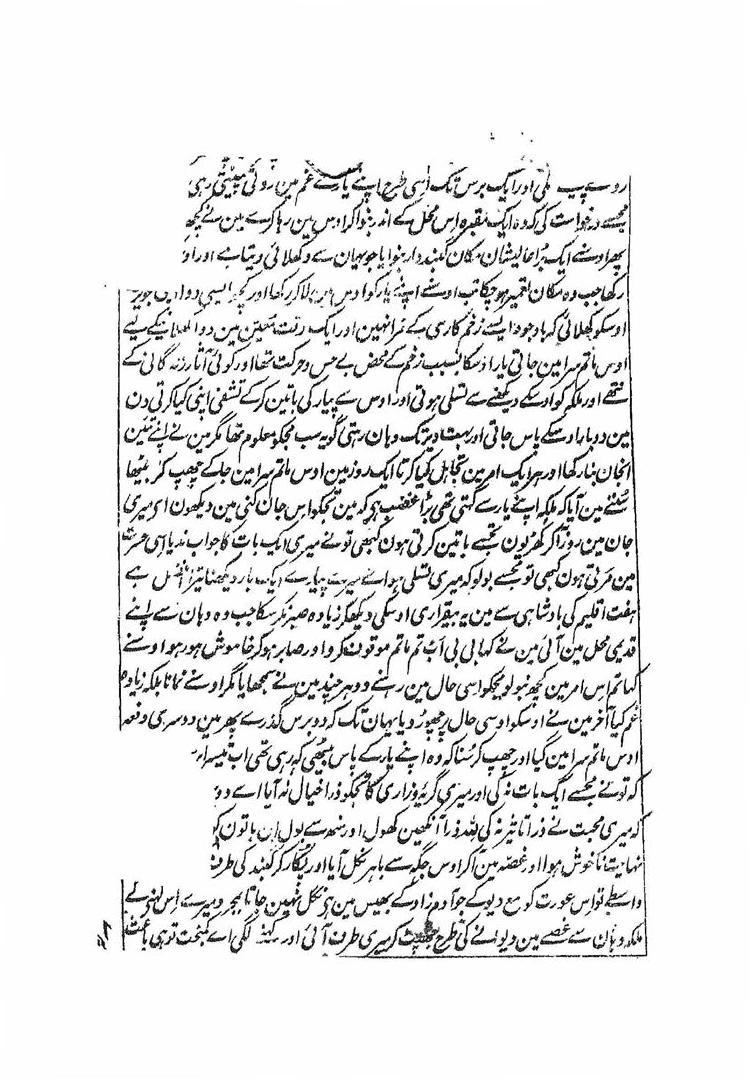 روے پیٹے لگی اور ایک برس تک اسی طرح اپنے یار کے غم مین روتی پیٹتی رہی
مجھسے درخواست کی کہ وہ ایک مقبرہ اس محل کے اندر بنواکر اوس مین رہا کرے مین نے کچھ
پھر اوسنے ایک بڑا عالیشان مکان گنبددار بنوایا جو یہان سے دکھلائی دیتا ہے اور او
رکھا جب وہ مکان تعمیر ہوچکا تب اوسنے اپنے یار کو اوس مین لاکر رکھا اور کچھ ایسی دوائین
اوسکو کھلائی کہ باوجود ایسے زخم کاری کے مرا نہین اور ایک وقت معین مین دوا کھلانیکے لیے
اوس ماتم سرا مین جاتی یار اوسکا بسبب زخم کے محض بے حس و حرکت تھا اور کوئی آثار زندگانی کے
نتھے اور ملکہ کو اوسکے دیکھنے سے تسلی ہوتی اور اوس سے پیار کی باتین کرکے تشفی اپنی کیا کرتی دن
مین دو بار اوسکے پاس جاتی اور بہت دیر تک وہان رہتی گویہ سب مجکو معلوم تھا مگر مین نے اپنے تئین
انجان بنا رکھا اور ہر ایک امر مین تجاہل کیا کرتا ایک روز مین اوس ماتم سرا مین جاکے چھپ کر بیٹھا
سننے مین آیا کہ ملکہ اپنے یار سے کہتی تھی بڑا غضب ہو کہ مین تجکو اس جان کنی مین دیکھون اے میری
جان مین روز آکر گھڑیون تجسے باتین کرتی ہون کبھی تونے میری ایک بات کا جواب ندیا اسی حسرت
مین مرتی ہون کبھی تو مجسے بولو کہ میری تسلی ہو اے میرے پیارے ایک بار دیکھنا تیرا افضل ہے
ہفت اقلیم کی بادشاہی سے مین یہ بیقراری اوسکی دیکھکر زیادہ صبر نکرسکا جب وہ وہان سے اپنے
قدیمی محل مین آئی مین نے کہا بی بی اب تم ماتم موقوف کرو اور صابر ہوکر خاموش ہو رہو اوسنے
کہا تم اس امر مین کچھ نبولو مجکو اسی حال مین رہنے دو ہرچند مین نے سمجھایا مگر اوسنے نمانا بلکہ زیادہ
غم کیا آخر مین نے اوسکو اوسی حال پر چھوڑ دیا یہان تک کہ دو برس گذرے پھر مین دوسری دفعہ
اوس ماتم سرا مین گیا اور چھپ کر سنا کہ وہ اپنے یار کے پاس بیٹھی کہ رہی تھی اب تیسرا
کہ تونے مجسے ایک بات نہ کی اور میری گریہ و زاری کا تجکو ذرا خیال نہ آیا اے دو
کہ میری محبت نے ذرا تاثیر نہ کی للہ ذرا آنکھین کھول اور منھ سے بول ان باتون کو
نہایت ناخوش ہوا اور غصہ مین آکر اوس جگہ سے باہر نکل آیا اور پکار کر گنبد کی طرف
واسطے تو اس عورت کو مع دیو کے جو آدم زاد کے بھیس مین ہی نگل نہین جاتا بمجرد میرے اس کہنے کے
ملکہ وہان سے غصے مین دیوانے کی طرح جھپٹ کر میری طرف آئی اور کہنے لگی اے کمبخت تو ہی باعث